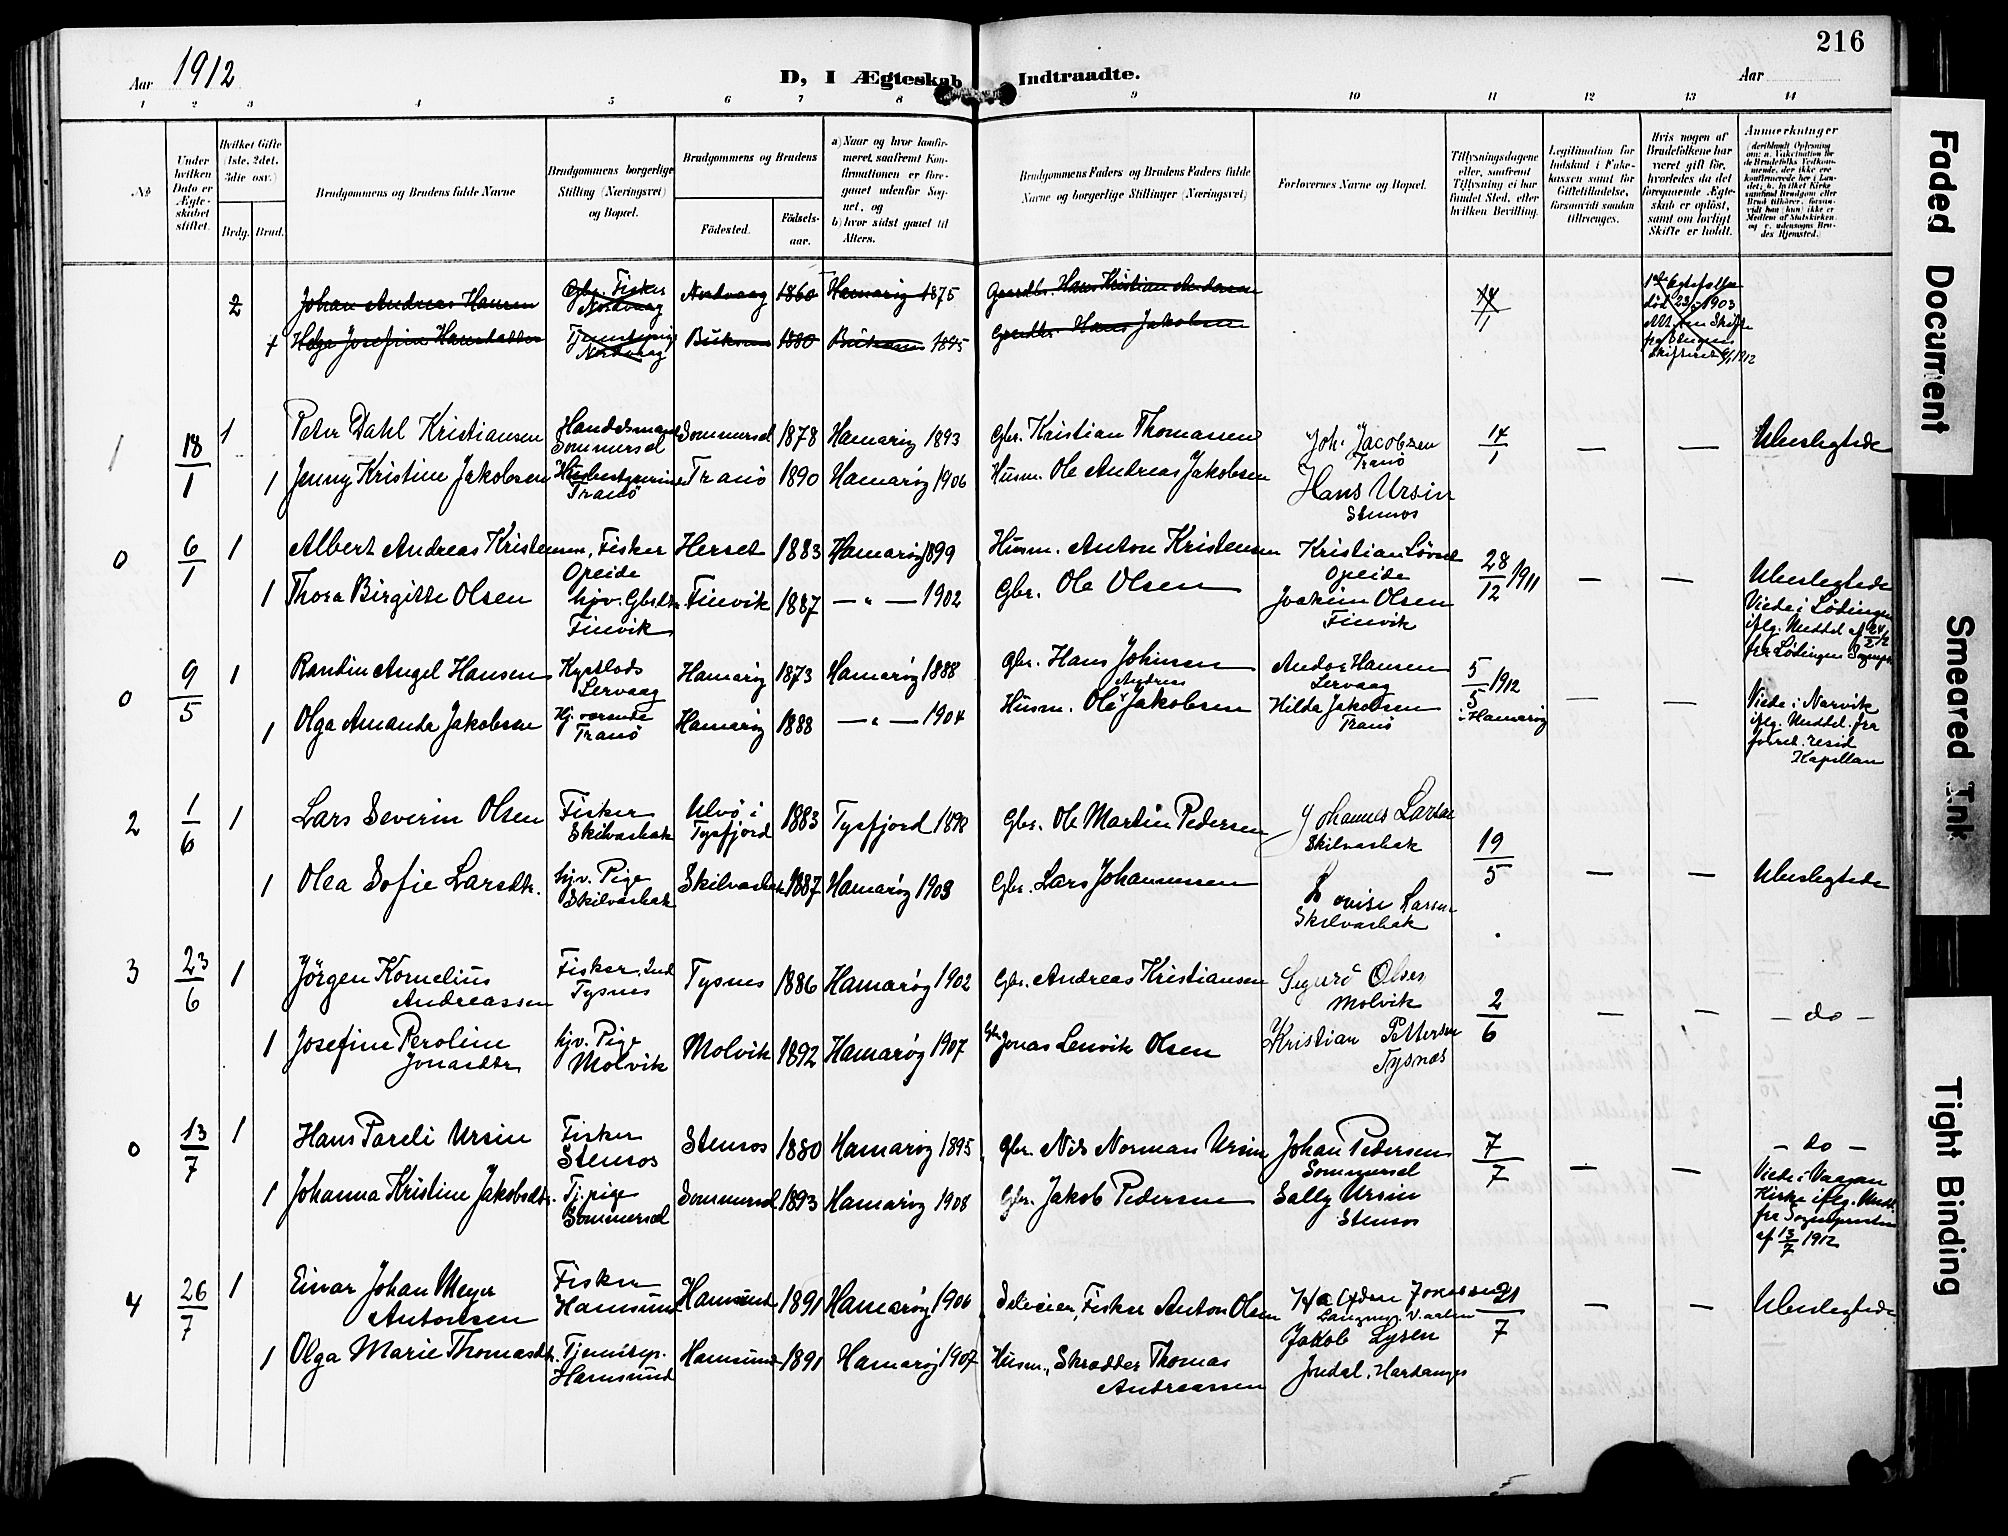 216
Aar 1912
D, I Ægteskab Indtraadte.
Aar
1 2 3 4 5 6 7 8 9 10 11 12 13 14
No
Under hvilken Dato er Ægteskabet stiftet.
Hvilket Gifte (1ste, 2det, 3die osv.)
Brdg. Brud.
Brudgommens og Brudens fulde Navne
Brudgommens borgerlige Stilling (Næringsvei) og Bopæl.
Brudgommens og Brudens
Födested.
Födsels-aar.
a) Naar og hvor konfirmeret, saafremt Konfirmationen er foregaaet udenfor Sognet, og
b) hvor sidst gaaet til Alters.
Brudgommens Faders og Brudens Faders fulde Navne og borgerlige Stillinger (Næringsvei)
Forlovernes Navne og Bopæl.
Tillysningsdagene eller, saafremt Tillysning ei har fundet Sted, efter hvilken Bevilling.
Legitimation for Indskud i Enkekassen samt for Giftetilladelse, forsaavidt saadan tiltrænges.
Hvis nogen af Brudefolkene har været gift før, hvorledes da det foregaaende Ægteskab er opløst, samt om lovligt Skifte er holdt.
Anmerkninger
2 Johan Andreas Hansen Gbr. Fisker Nordvaag Nordvaag 1860 Hamarøy 1875 Gaardbr. Hans Kristian Andersen 14/1
Helga Josefine Hansdatter Nordvaag 1880 Gaardbr. Hans Jakobsen
1 18/1 1 Peter Dahl Kristiansen Handelsmand Sommersel Sommersel 1878 Hamarøy 1893 Gbr. Kristian Thomassen Joh. Jacobsen Tranö 14/1 — — Ubeslegtede
1 Jenny Kristine Jakobsen Tranö Tranö 1890 Hamarøy 1906 Husm. Ole Andreas Jakobsen Hans Ursin Stensos
0 6/1 1 Albert Andreas Kristensen, Fisker Opeide Herset 1883 Hamarøy 1899 Husm. Anton Kristensen Kristian Lövset Opeide 28/12 1911 — — Ubeslegtede
1 Thora Birgitte Olsen hjv. Gbrdtr. Finvik Finvik 1887 — „ — 1902 Gbr. Ole Olsen Joakim Olsen Finvik
Viede i Lödingen iflg. Meddel. af 24/2 12 fra Lödingen Sognepr.
0 9/5 1 Randin Angel Hansen Lervaag Hamarøy 1873 Hamarøy 1888 Gbr. Hans Johnsen Andor Hansen Lervaag 5/5 1912 i Hamarøy — —
1 Olga Amanda Jakobsen Hj. værende Tranö Hamarøy 1888 — „ — 1904 Husm. Ole Andreas Jakobsen Hilda Jakobsen Tranö
Viede i Narvik iflg. Meddel. fra resid Kapellan
2 1/6 1 Lars Severin Olsen Fisker Skilvasbak Ulvö i Tysfjord 1883 Tysfjord 1898 Gbr. Ole Martin Pedersen Johannes Larsen Skilvasbak 19/5 — — Ubeslegtede
1 Olea Sofie Larsdtr. hjv. Pige Skilvasbak Skilvasbak 1887 Hamarøy 1903 Gbr. Lars Johannessen Lovise Larsen Skilvasbak
3 23/6 1 Jörgen Kornelius Andreassen Fisker, Ind Tysnes Tysnes 1886 Hamarøy 1902 Gbr. Andreas Kristiansen Sigurd Olsen Molvik 2/6 — — — do —
1 Josefine Peroline Jonasdtr hjv. Pige Molvik Molvik 1892 Hamarøy 1907 Gbr. Jonas Lenvik Olsen Kristian Pettersen Tysnæs
0 13/7 1 Hans Pareli Ursin Fisker Stensos Stensos 1880 Hamarøy 1895 Gbr. Nils Norman Ursin Johan Pedersen Sommersel 7/7 — — — do —
1 Johanna Kristine Jakobsdtr. Tj. pige Sommersel Sommersel 1893 Hamarøy 1908 Gbr. Jakob Pedersen Sally Ursin Stensos
Viede i Vaagan Kirke iflg. Medd. fra Sognepresten af 13/7 1912
4 26/7 1 Einar Johan Meyer Antonsen Fisker Hamsund Hamsund 1891 Hamarøy 1906 Fisker Anton Olsen 21/7 — — Ubeslegtede
1 Olga Marie Thomasdtr. Tjenestep. Hamsund Hamsund 1891 Hamarøy 1907 Husm., Skrædder Thomas Andreassen Jakob Lysen Jondal, Hardanger
Faded Document
Smeared Ink
Tight Binding